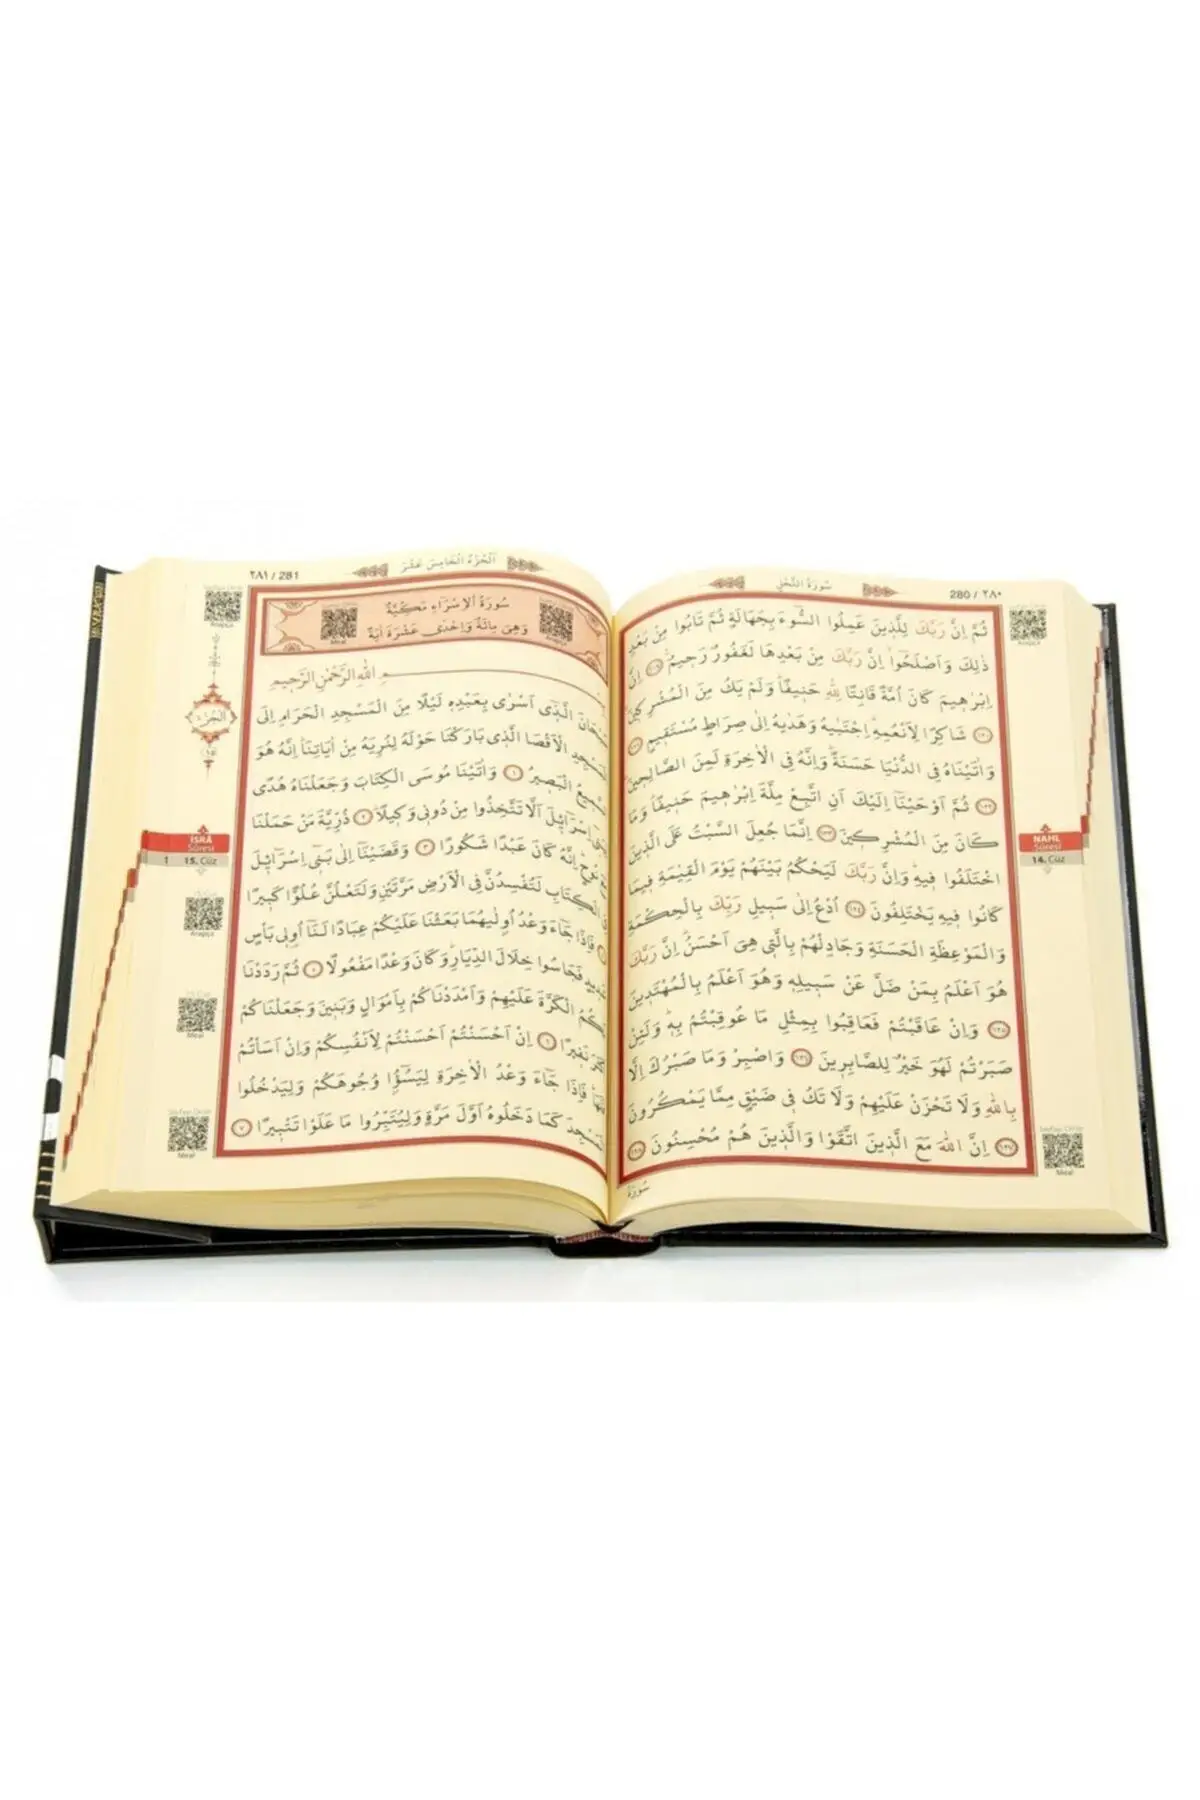 سُورَةُ النَّحْلِ
280 / ٢٨٠
ثُمَّ اِنَّ رَبَّكَ لِلَّذ۪ينَ عَمِلُوا السُّٓوءَ بِجَهَالَةٍ ثُمَّ تَابُوا مِنْ بَعْدِ
ذٰلِكَ وَاَصْلَحُٓوا اِنَّ رَبَّكَ مِنْ بَعْدِهَا لَغَفُورٌ رَح۪يمٌ ﴿١١٩﴾ اِنَّ
اِبْرٰه۪يمَ كَانَ اُمَّةً قَانِتًا لِلّٰهِ حَن۪يفًا وَلَمْ يَكُ مِنَ الْمُشْرِك۪ينَ
﴿١٢٠﴾ شَاكِرًا لِاَنْعُمِهِ اِجْتَبٰيهُ وَهَدٰيهُ اِلٰى صِرَاطٍ مُسْتَق۪يمٍ ﴿١٢١﴾
وَاٰتَيْنَاهُ فِي الدُّنْيَا حَسَنَةً وَاِنَّهُ فِي الْاٰخِرَةِ لَمِنَ الصَّالِح۪ينَ
﴿١٢٢﴾ ثُمَّ اَوْحَيْنَٓا اِلَيْكَ اَنِ اتَّبِعْ مِلَّةَ اِبْرٰه۪يمَ حَن۪يفًا وَمَا
كَانَ مِنَ الْمُشْرِك۪ينَ ﴿١٢٣﴾ اِنَّمَا جُعِلَ السَّبْتُ عَلَى الَّذ۪ينَ
اخْتَلَفُوا ف۪يهِ وَاِنَّ رَبَّكَ لَيَحْكُمُ بَيْنَهُمْ يَوْمَ الْقِيٰمَةِ ف۪يمَا
كَانُوا ف۪يهِ يَخْتَلِفُونَ ﴿١٢٤﴾ اُدْعُ اِلٰى سَب۪يلِ رَبِّكَ بِالْحِكْمَةِ
وَالْمَوْعِظَةِ الْحَسَنَةِ وَجَادِلْهُمْ بِالَّت۪ي هِيَ اَحْسَنُ اِنَّ رَبَّكَ
هُوَ اَعْلَمُ بِمَنْ ضَلَّ عَنْ سَب۪يلِه۪ وَهُوَ اَعْلَمُ بِالْمُهْتَد۪ينَ
﴿١٢٥﴾ وَاِنْ عَاقَبْتُمْ فَعَاقِبُوا بِمِثْلِ مَا عُوقِبْتُمْ بِه۪ وَلَئِنْ
صَبَرْتُمْ لَهُوَ خَيْرٌ لِلصَّابِر۪ينَ ﴿١٢٦﴾ وَاصْبِرْ وَمَا صَبْرُكَ اِلَّا
بِاللّٰهِ وَلَا تَحْزَنْ عَلَيْهِمْ وَلَا تَكُ ف۪ي ضَيْقٍ مِمَّا يَمْكُرُونَ
﴿١٢٧﴾ اِنَّ اللّٰهَ مَعَ الَّذ۪ينَ اتَّقَوْا وَالَّذ۪ينَ هُمْ مُحْسِنُونَ ﴿١٢٨﴾
سُورَةُ
Arapça
NAHL
Sûresi
14. Cüz
Meal
اَلْجُزْءُ الْخَامِسَ عَشَرَ
٢٨١ / 281
سُورَةُ الْاِسْرَاءِ مَكِّيَّةٌ
وَهِيَ مِائَةٌ وَاِحْدٰى عَشْرَةَ اٰيَةً
Meal
اللّٰهِ الرَّحْمٰنِ الرَّح۪يمِ
الَّذ۪ٓي اَسْرٰى بِعَبْدِه۪ لَيْلًا مِنَ الْمَسْجِدِ الْحَرَامِ اِلَى
الْاَقْصَا الَّذ۪ي بَارَكْنَا حَوْلَهُ لِنُرِيَهُ مِنْ اٰيَاتِنَا اِنَّهُ هُوَ
الْبَص۪يرُ ﴿١﴾ وَاٰتَيْنَا مُوسَى الْكِتَابَ وَجَعَلْنَاهُ هُدًى
اِسْرَٓائ۪لَ اَلَّا تَتَّخِذُوا مِنْ دُون۪ي وَك۪يلًا ﴿٢﴾ ذُرِّيَّةَ مَنْ حَمَلْنَا
اِنَّهُ كَانَ عَبْدًا شَكُورًا ﴿٣﴾ وَقَضَيْنَٓا اِلٰى بَن۪ٓي اِسْرَٓائ۪لَ
الْكِتَابِ لَتُفْسِدُنَّ فِي الْاَرْضِ مَرَّتَيْنِ وَلَتَعْلُنَّ عُلُوًّا كَب۪يرًا
فَاِذَا جَٓاءَ وَعْدُ اُو۫لٰيهُمَا بَعَثْنَا عَلَيْكُمْ عِبَادًا لَنَٓا اُو۬ل۪ي بَأْسٍ
فَجَاسُوا خِلَالَ الدِّيَارِ وَكَانَ وَعْدًا مَفْعُولًا ﴿٥﴾ ثُمَّ رَدَدْنَا
لَكُمُ الْكَرَّةَ عَلَيْهِمْ وَاَمْدَدْنَاكُمْ بِاَمْوَالٍ وَبَن۪ينَ وَجَعَلْنَاكُمْ
نَف۪يرًا ﴿٦﴾ اِنْ اَحْسَنْتُمْ اَحْسَنْتُمْ لِاَنْفُسِكُمْ وَاِنْ اَسَأْتُمْ
فَاِذَا جَٓاءَ وَعْدُ الْاٰخِرَةِ لِيَسُٓؤُا وُجُوهَكُمْ وَلِيَدْخُلُوا
كَمَا دَخَلُوهُ اَوَّلَ مَرَّةٍ وَلِيُتَبِّرُوا مَا عَلَوْا تَتْب۪يرًا ﴿٧﴾
Arapça
اَلْجُزْءُ
١٥
İSRÂ
Sûresi
1 15. Cüz
Arapça
Meal
Meal